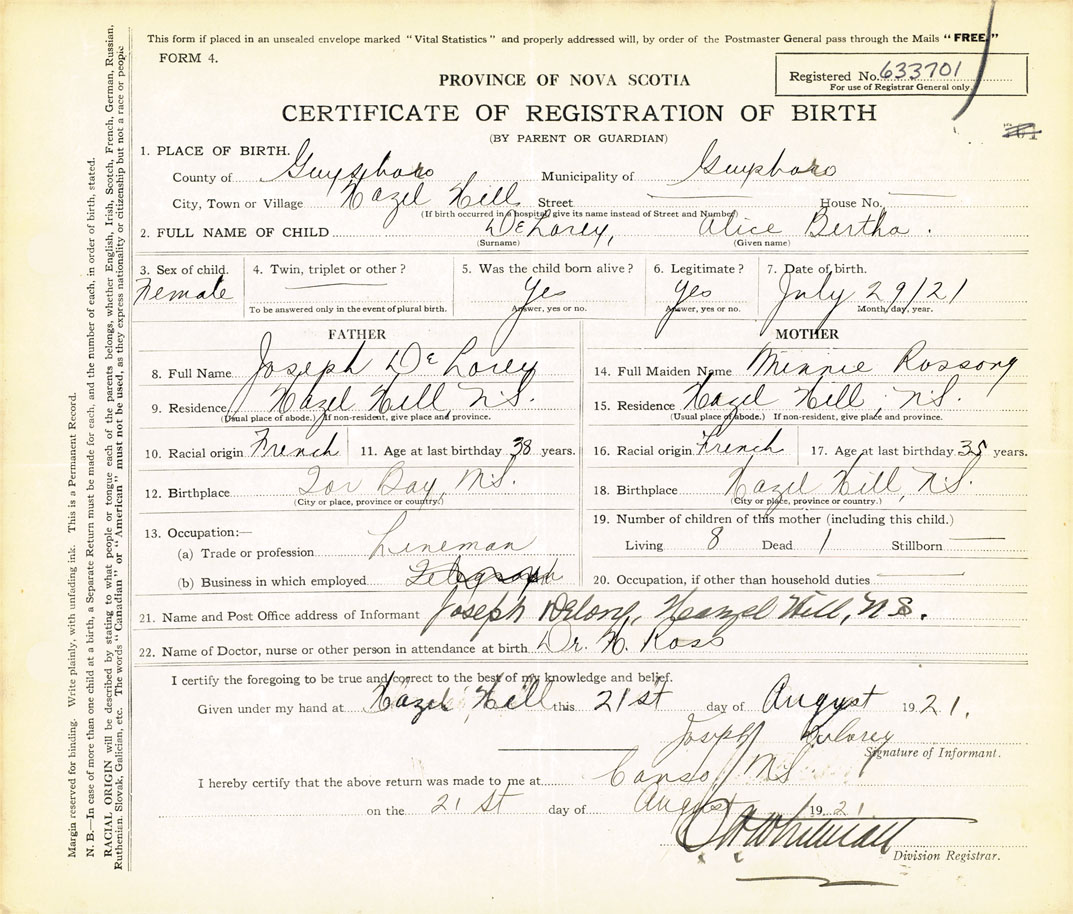 This form if placed in an unsealed envelope marked "Vital Statistics" and properly addressed will, by order of the Postmaster General pass through the Mails "FREE."
FORM 4.
Registered No. 633701
For use of Registrar General only.
PROVINCE OF NOVA SCOTIA
CERTIFICATE OF REGISTRATION OF BIRTH
(BY PARENT OR GUARDIAN)
1. PLACE OF BIRTH.
County of Guysboro Municipality of Guysboro
City, Town or Village Hazel Hill Street House No.
(If birth occurred in a hospital give its name instead of Street and Number)
2. FULL NAME OF CHILD DeLorey, Alice Bertha.
(Surname) (Given name)
3. Sex of child. 4. Twin, triplet or other? 5. Was the child born alive? 6. Legitimate? 7. Date of birth.
Female Yes Yes July 29/21
To be answered only in the event of plural birth. Answer, yes or no. Answer, yes or no. Month, day, year.
FATHER
8. Full Name Joseph DeLorey
9. Residence Hazel Hill N.S.
(Usual place of abode.) If non-resident, give place and province.
10. Racial origin French 11. Age at last birthday 38 years.
12. Birthplace Tor Bay, N.S.
(City or place, province or country.)
13. Occupation:—
(a) Trade or profession Lineman
(b) Business in which employed Telegraph
MOTHER
14. Full Maiden Name Minnie Rossong
15. Residence Hazel Hill, N.S.
(Usual place of abode.) If non-resident, give place and province.
16. Racial origin French 17. Age at last birthday 35 years.
18. Birthplace Hazel Hill, N.S.
(City or place, province or country.)
19. Number of children of this mother (including this child.)
Living 8 Dead 1 Stillborn
20. Occupation, if other than household duties
21. Name and Post Office address of Informant Joseph Delorey, Hazel Hill, N.S.
22. Name of Doctor, nurse or other person in attendance at birth Dr. H. Ross
I certify the foregoing to be true and correct to the best of my knowledge and belief.
Given under my hand at Hazel Hill this 21st day of August 1921.
Joseph Delorey
Signature of Informant.
I hereby certify that the above return was made to me at Canso, N.S.
on the 21st day of August 1921
Division Registrar.
Margin reserved for binding. Write plainly, with unfading ink. This is a Permanent Record.
N. B.—In case of more than one child at a birth, a Separate Return must be made for each, and the number of each, in order of birth, stated.
RACIAL ORIGIN will be described by stating to what people or tongue each of the parents belongs, whether English, Irish, Scotch, French, German, Russian,
Ruthenian, Slovak, Galician, etc. The words "Canadian" or "American" must not be used, as they express nationality or citizenship but not a race or people